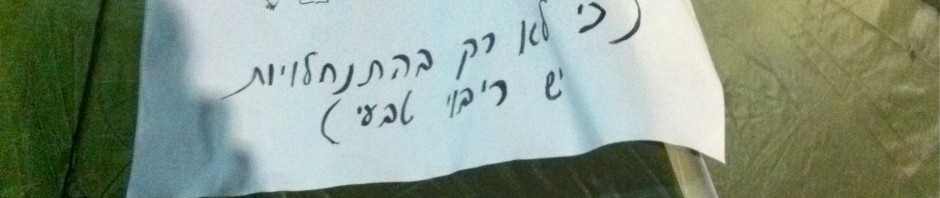 (כי לא רק בהתנחלויות
יש ריבוי טבעי)